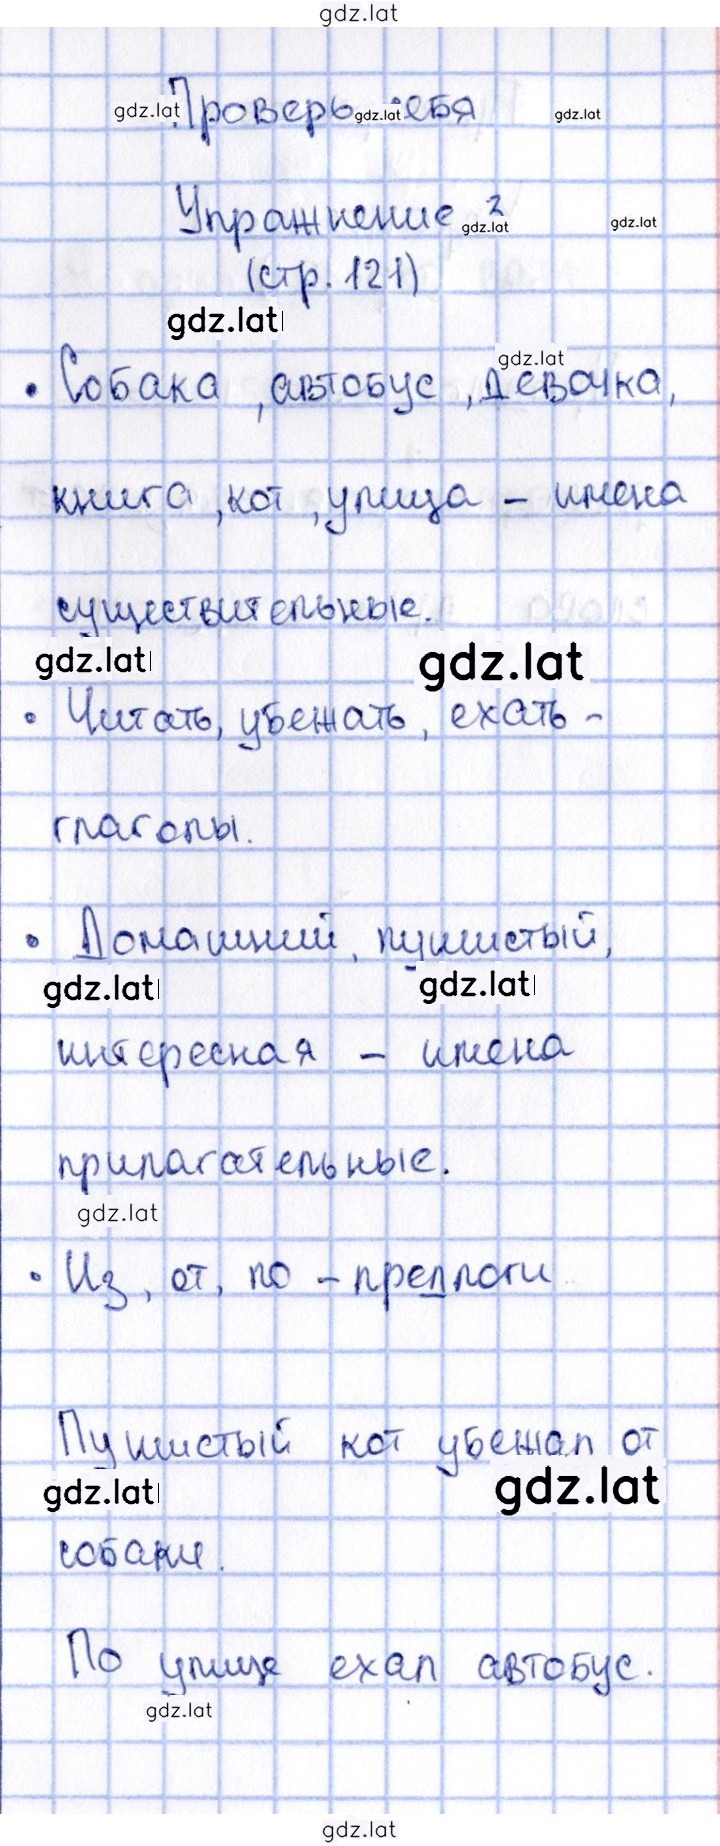 gdz.lat
Проверь себя
gdz.lat gdz.lat gdz.lat
Упражнение 2
gdz.lat gdz.lat
(стр. 121)
gdz.lat
gdz.lat
• Собака, автобус, девочка,
книга, кот, улица – имена
существительные.
gdz.lat gdz.lat
• Читать, убежать, ехать –
глаголы.
• Домашний, пушистый,
gdz.lat gdz.lat
интересная – имена
прилагательные.
gdz.lat
• Из, от, по – предлоги
Пушистый кот убежал от
gdz.lat gdz.lat
собаки.
По улице ехал автобус.
gdz.lat
gdz.lat